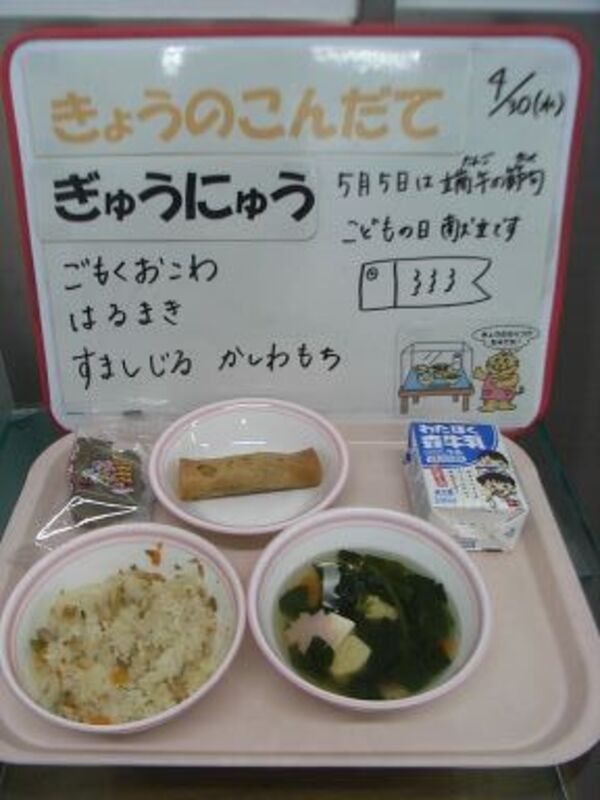 きょうのこんだて
4/30(水)
ぎゅうにゅう
5月5日は端午の節句
たんご
こどもの日献立です
ごもくおこわ
はるまき
すましじる かしわもち
わたぼく
牛乳